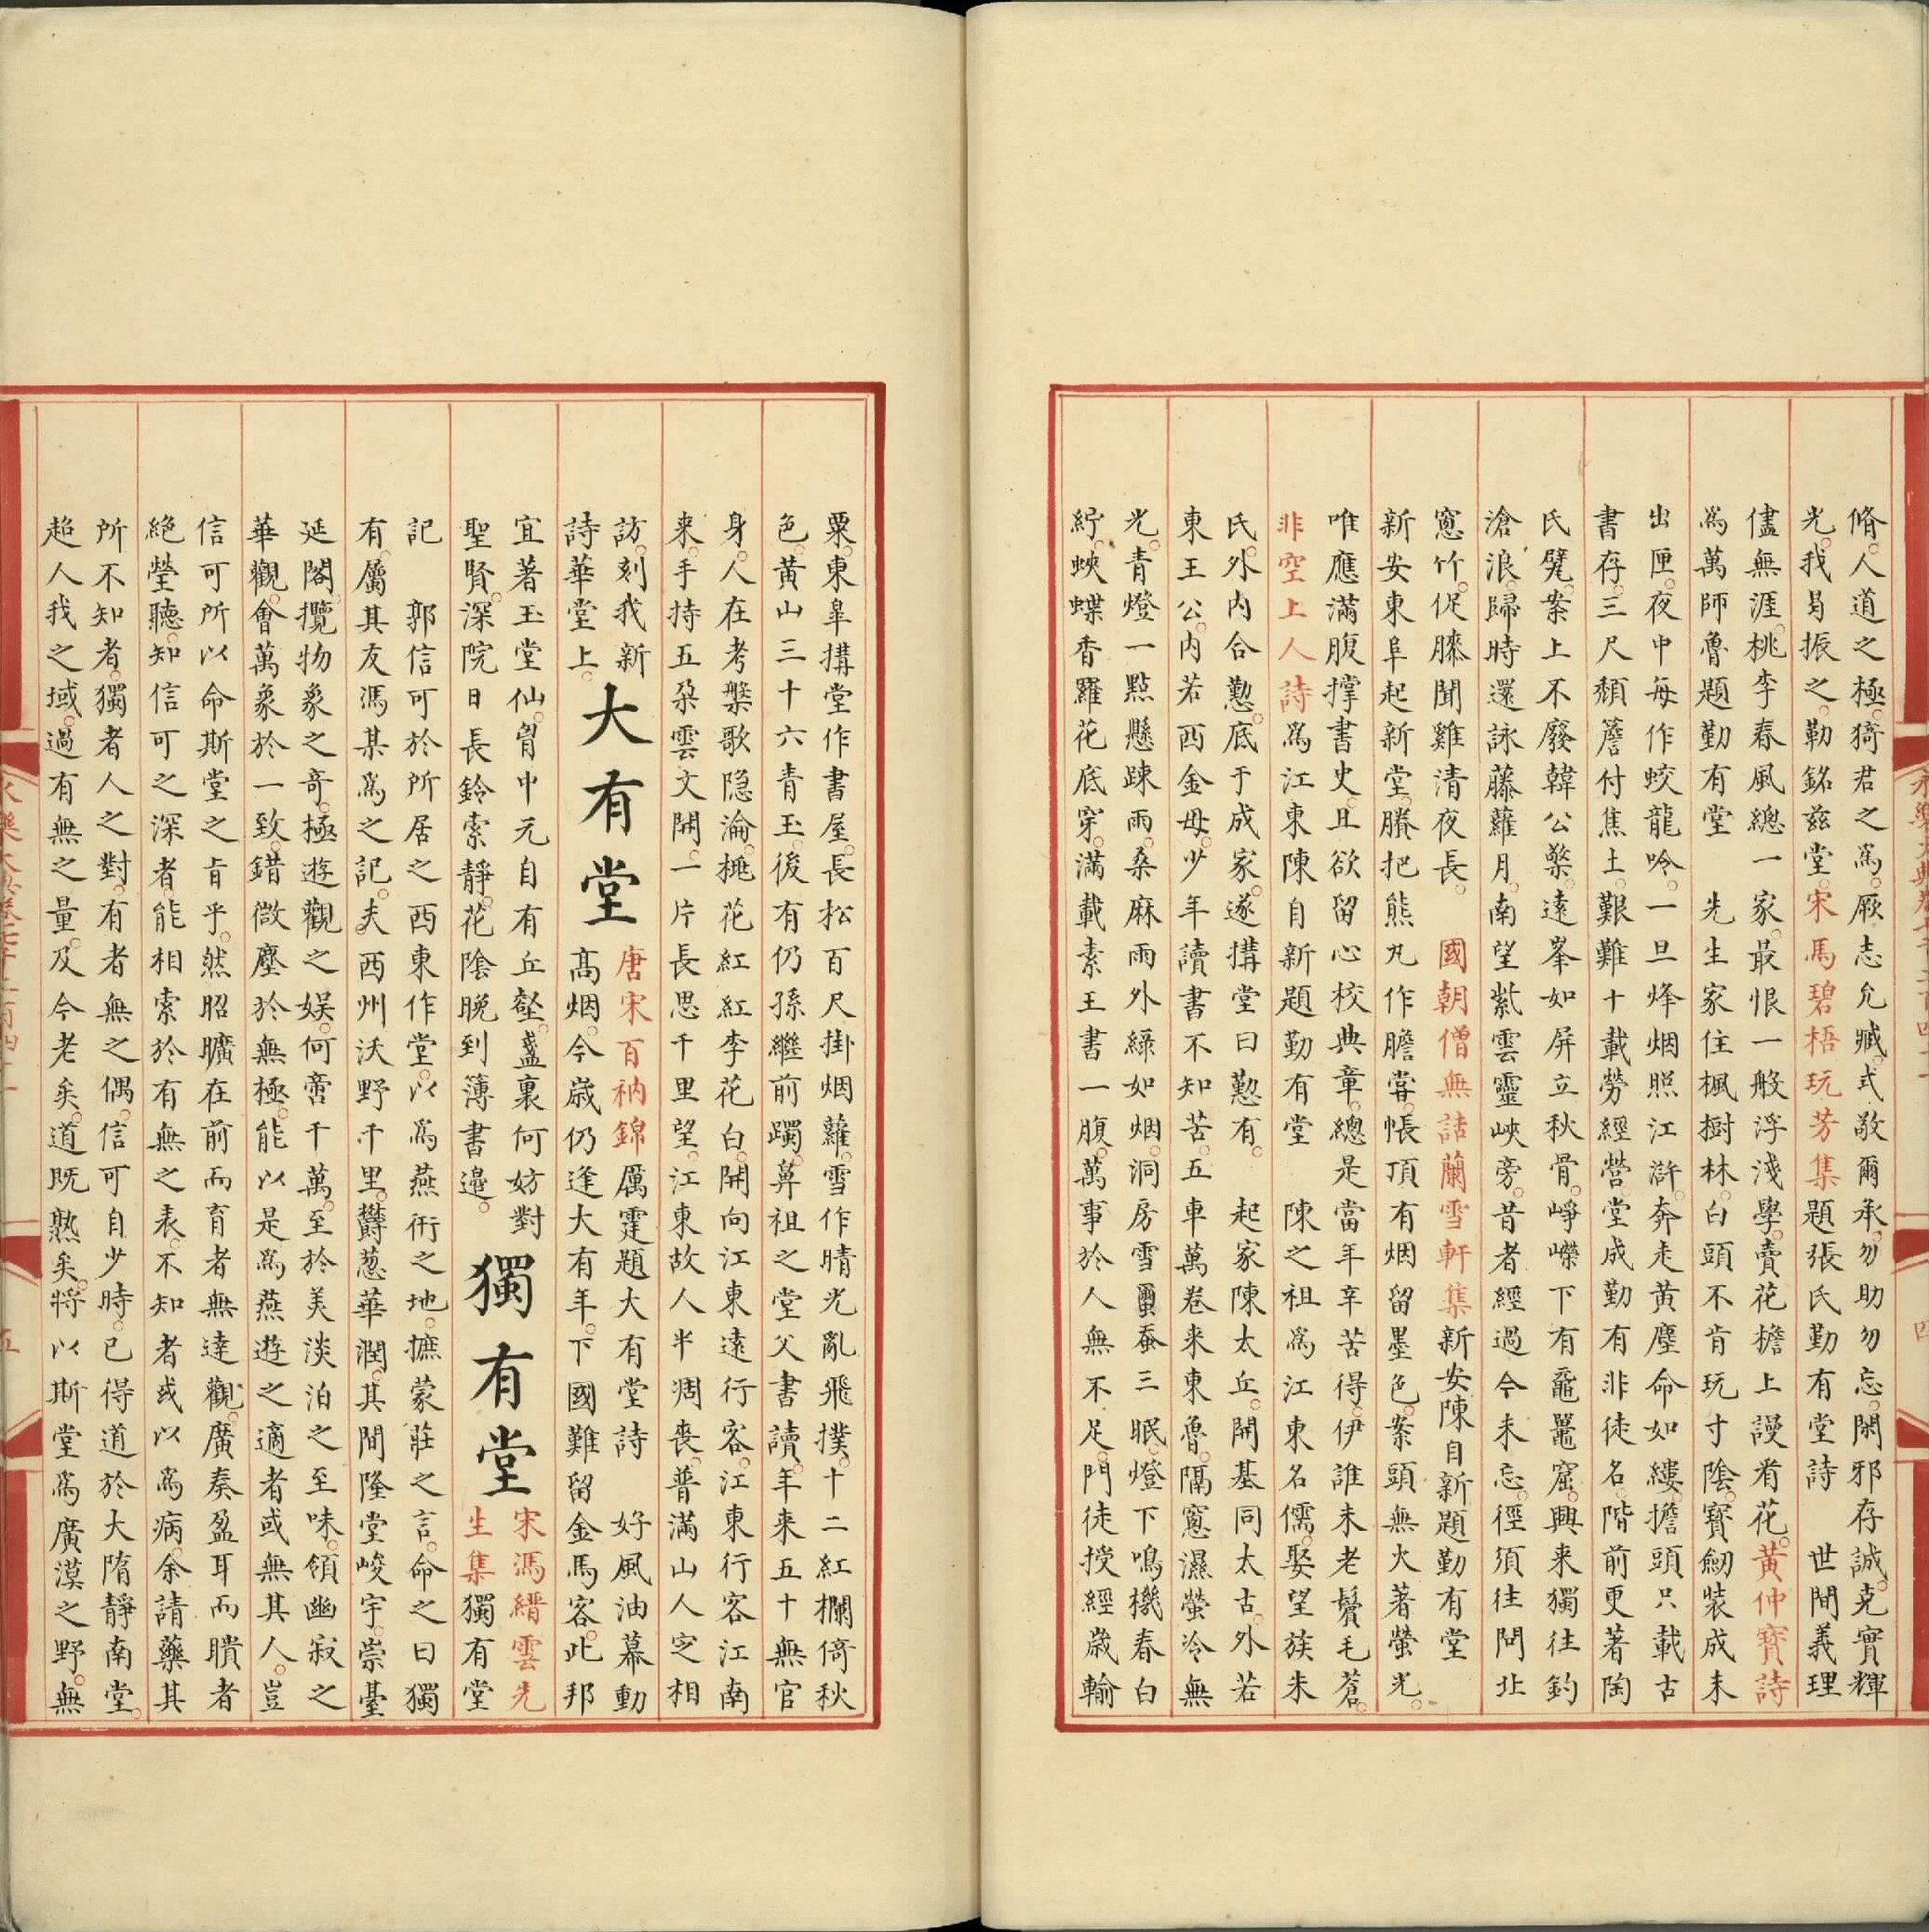 脩人道之極猗君之為厥志允臧式敬爾承勿助勿忘閑邪存誠克實輝
光我曷振之勒銘茲堂宋馬碧梧玩芳集題張氏勤有堂詩　世間義理
儘無涯桃李春風總一家最恨一般浮淺學賣花檐上謾看花黄仲寶詩
為萬師魯題勤有堂　先生家住楓樹林白頭不肯玩寸陰寶劒裝成未
出匣夜中每作蛟龍吟一旦烽烟照江滸奔走黄塵命如縷擔頭只載古
書存三尺頹簷付焦土艱難十載勞經營堂成勤有非徒名階前更著陶
氏甓案上不廢韓公檠遠峯如屏立秋骨崢嶸下有黿鼉窟興来獨往釣
滄浪歸時還詠藤蘿月南望紫雲靈峽旁昔者經過今未忘徑須往問北
窻竹促膝聞雞清夜長　國朝僧無詰蘭雪軒集新安陳自新題勤有堂
新安東阜起新堂賸把熊丸作膽甞帳頂有烟留墨色案頭無火著螢光
唯應滿腹撑書史且欲留心校典章總是當年辛苦得伊誰未老鬢毛蒼
非空上人詩為江東陳自新題勤有堂　陳之祖為江東名儒娶望族朱
氏外内合懃底于成家遂搆堂曰懃有　起家陳太丘開基同太古外若
東王公内若西金母少年讀書不知苦五車萬卷来東魯隔窻濕螢冷無
光青燈一點懸踈雨桑麻雨外綠如烟洞房雪蠒蚕三眠燈下鳴機春白
紵蛺蝶香羅花底穿滿載素王書一腹萬事於人無不足門徒授經歲輸
粟東皐搆堂作書屋長松百尺掛烟蘿雪作晴光亂飛撲十二紅欄倚秋
色黄山三十六青玉後有仍孫繼前躅鼻祖之堂父書讀年来五十無官
身人在考槃歌隐淪桃花紅紅李花白開向江東遠行客江東行客江南
来手持五朶雲文開一片長思千里望江東故人半凋喪普滿山人定相
訪刻我新
詩華堂上
大有堂
唐宋百衲錦厲霆題大有堂詩　好風油幕動
高烟今歲仍逢大有年下國難留金馬客此邦
宜著玉堂仙胷中元自有丘壑盞裏何妨對
聖賢深院日長鈴索靜花陰晩到簿書邉
獨有堂
宋馮縉雲先
生集獨有堂
記　郭信可於所居之西東作堂以為燕衎之地摭蒙莊之言命之曰獨
有屬其友馮某為之記夫西州沃野千里欝葱華潤其間隆堂峻宇崇臺
延閣攬物象之奇極遊觀之娱何啻千萬至於美淡泊之至味領幽寂之
華觀會萬象於一致錯微塵於無極能以是為燕遊之適者或無其人豈
信可所以命斯堂之㫖乎然昭曠在前而盲者無達觀廣奏盈耳而聵者
絶瑩聽知信可之深者能相索於有無之表不知者或以為病余請藥其
所不知者獨者人之對有者無之偶信可自少時已得道於大隋靜南堂
超人我之域過有無之量及今老矣道既熟矣将以斯堂為廣漠之野無